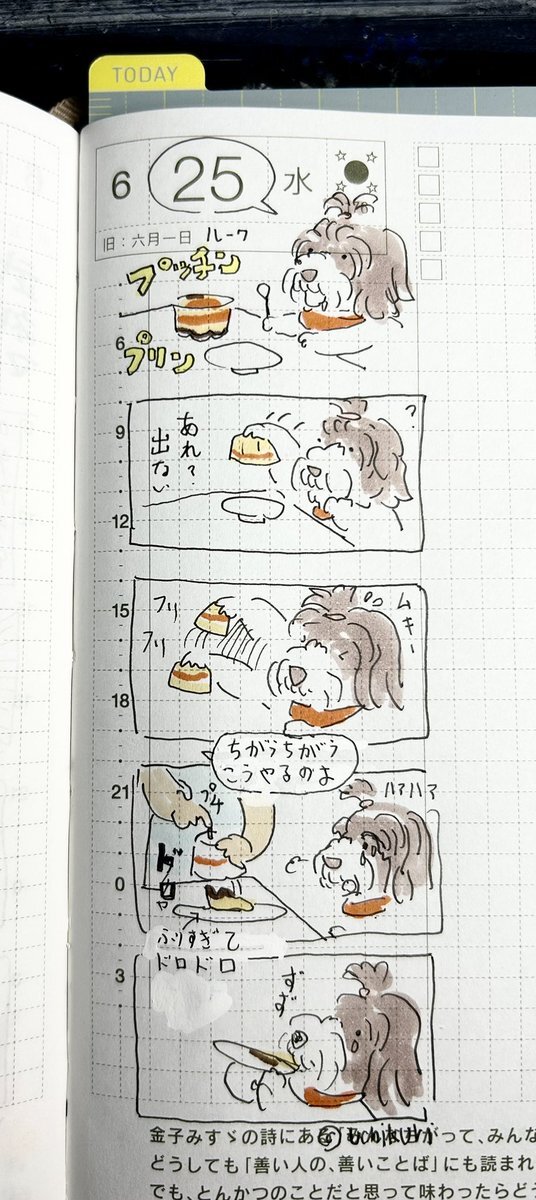 TODAY
6 25 水
旧：六月一日 ルーク
プッチン
プリン
6
9
あれ？
出ない
?
12
15
フリ
フリ
ムキー
18
ちがうちがう
こうやるのよ
21
プチ
ハァハァ
0
ふりすぎて
ドロドロ
3
ずず
金子みすゞの詩にある
って、みんな
どうしても「善い人の、善いことば」にも読まれ
でも、とんかつのことだと思って味わったらどう